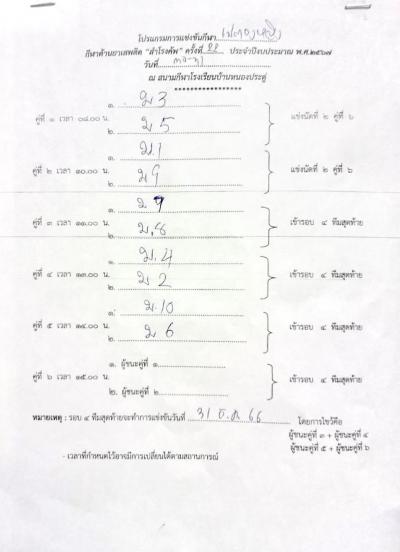 โปรแกรมการแข่งขันกีฬา เปตองหญิง
กีฬาต้านยาเสพติด "สำโรงคัพ" ครั้งที่ ๒๒ ประจำปีงบประมาณ พ.ศ.๒๕๖๗
วันที่ ๓๐-๓๑
ณ สนามกีฬาโรงเรียนบ้านหนองประดู่
*****************
คู่ที่ ๑ เวลา ๐๙.๐๐ น. ๑. ม 3 ๒. ม 5 แข่งนัดที่ ๒ คู่ที่ ๖
คู่ที่ ๒ เวลา ๑๐.๐๐ น. ๑. ม.1 ๒. ม 9 แข่งนัดที่ ๒ คู่ที่ ๖
คู่ที่ ๓ เวลา ๑๑.๐๐ น. ๑. ม 7 ๒. ม.8 เข้ารอบ ๔ ทีมสุดท้าย
คู่ที่ ๔ เวลา ๑๓.๐๐ น. ๑. ม.4 ๒. ม 2 เข้ารอบ ๔ ทีมสุดท้าย
คู่ที่ ๕ เวลา ๑๔.๐๐ น. ๑. ม.10 ๒. ม 6 เข้ารอบ ๔ ทีมสุดท้าย
คู่ที่ ๖ เวลา ๑๕.๐๐ น. ๑. ผู้ชนะคู่ที่ ๑ ๒. ผู้ชนะคู่ที่ ๒ เข้ารอบ ๔ ทีมสุดท้าย
หมายเหตุ : รอบ ๔ ทีมสุดท้ายจะทำการแข่งขันวันที่ 31 ธ.ค 66 โดยการไขว้คือ
ผู้ชนะคู่ที่ ๓ + ผู้ชนะคู่ที่ ๔
ผู้ชนะคู่ที่ ๕ + ผู้ชนะคู่ที่ ๖
- เวลาที่กำหนดไว้อาจมีการเปลี่ยนได้ตามสถานการณ์